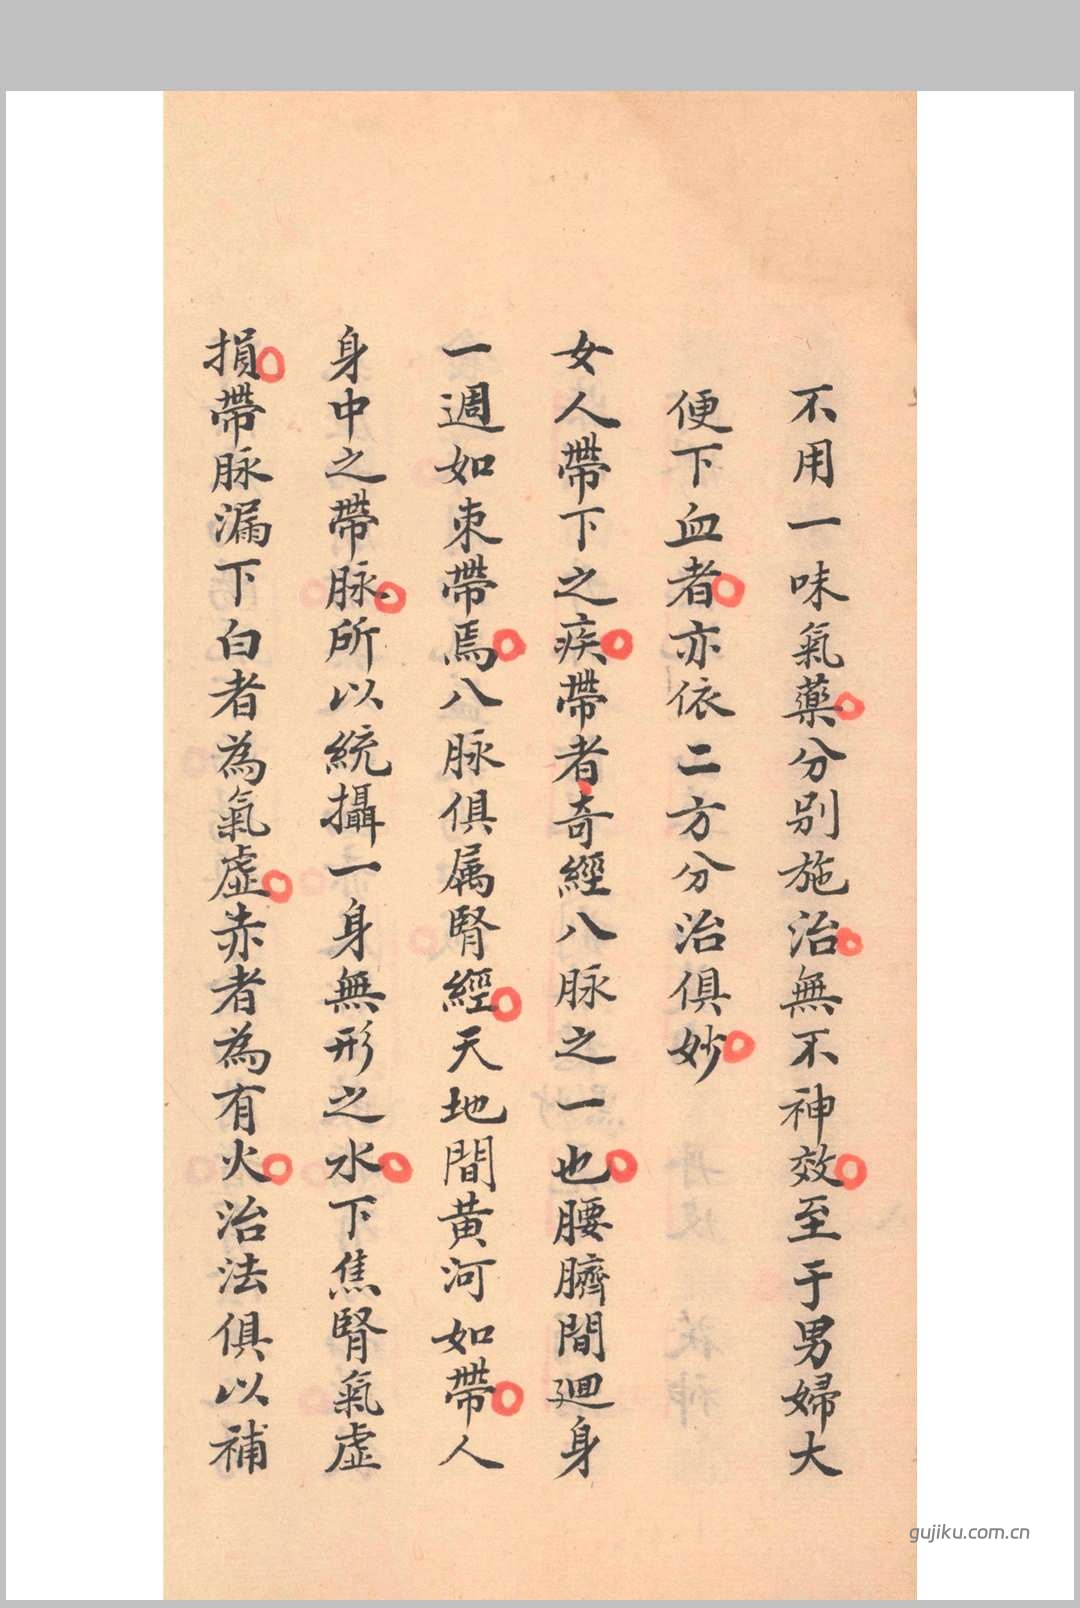 不用一味氣藥分别施治無不神效至于男婦大
便下血者亦依二方分治俱妙
女人帶下之疾帶者奇經八脉之一也腰臍間廻身
一週如束帶焉八脉俱属腎經天地間黄河如帶人
身中之帶脉所以統攝一身無形之水下焦腎氣虚
損帶脉漏下白者為氣虚赤者為有火治法俱以補
gujiku.com.cn